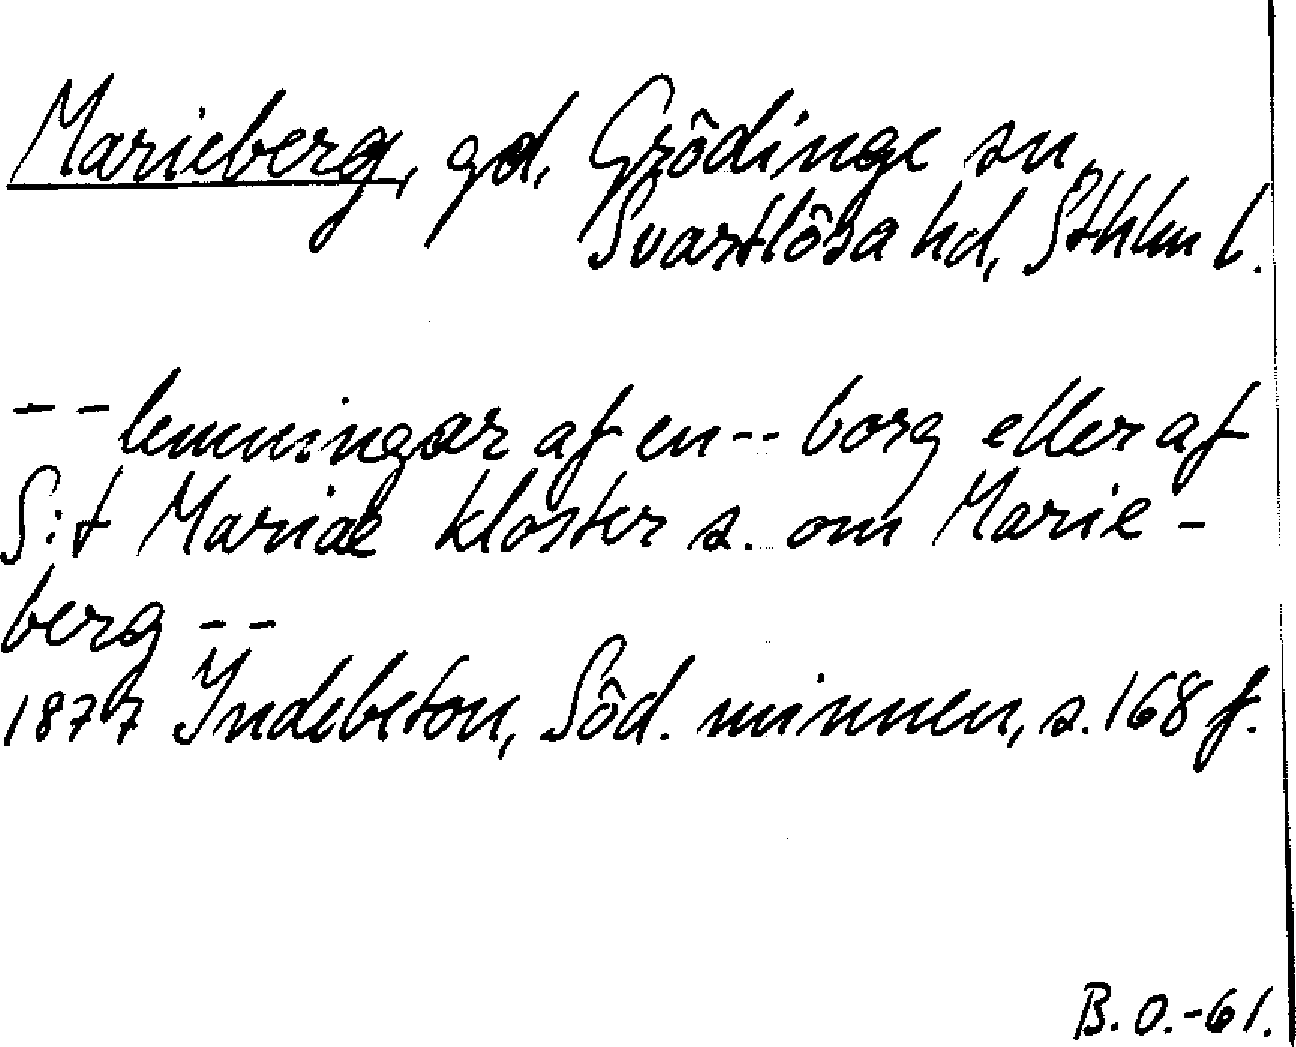 Marieberg, gd, Grödinge sn,
Svartlösa hd, Sthlm l.
-- lemningar af en -- borg eller af
S:t Mariæ kloster s. om Marie-
berg --
1877 Indebetou, Söd. minnen, s. 168 f.
B. O. -61.